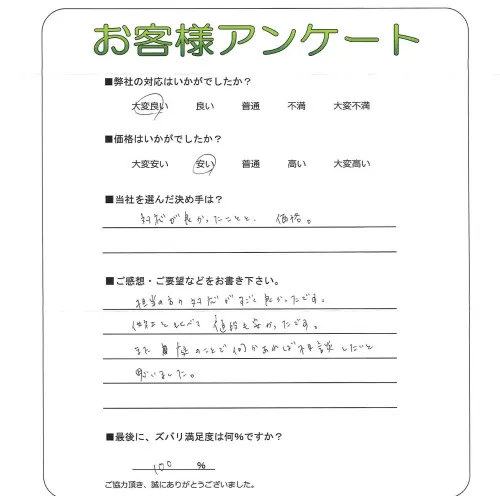 お客様アンケート
■弊社の対応はいかがでしたか？
大変良い 良い 普通 不満 大変不満
■価格はいかがでしたか？
大変安い 安い 普通 高い 大変高い
■当社を選んだ決め手は？
対応が良かったことと、価格。
■ご感想・ご要望などをお書き下さい。
担当の方の対応がすごく良かったです。
他社とくらべて値段も安かったです。
また のことで何かあれば相談したいと
思いました。
■最後に、ズバリ満足度は何％ですか？
100 %
ご協力頂き、誠にありがとうございました。